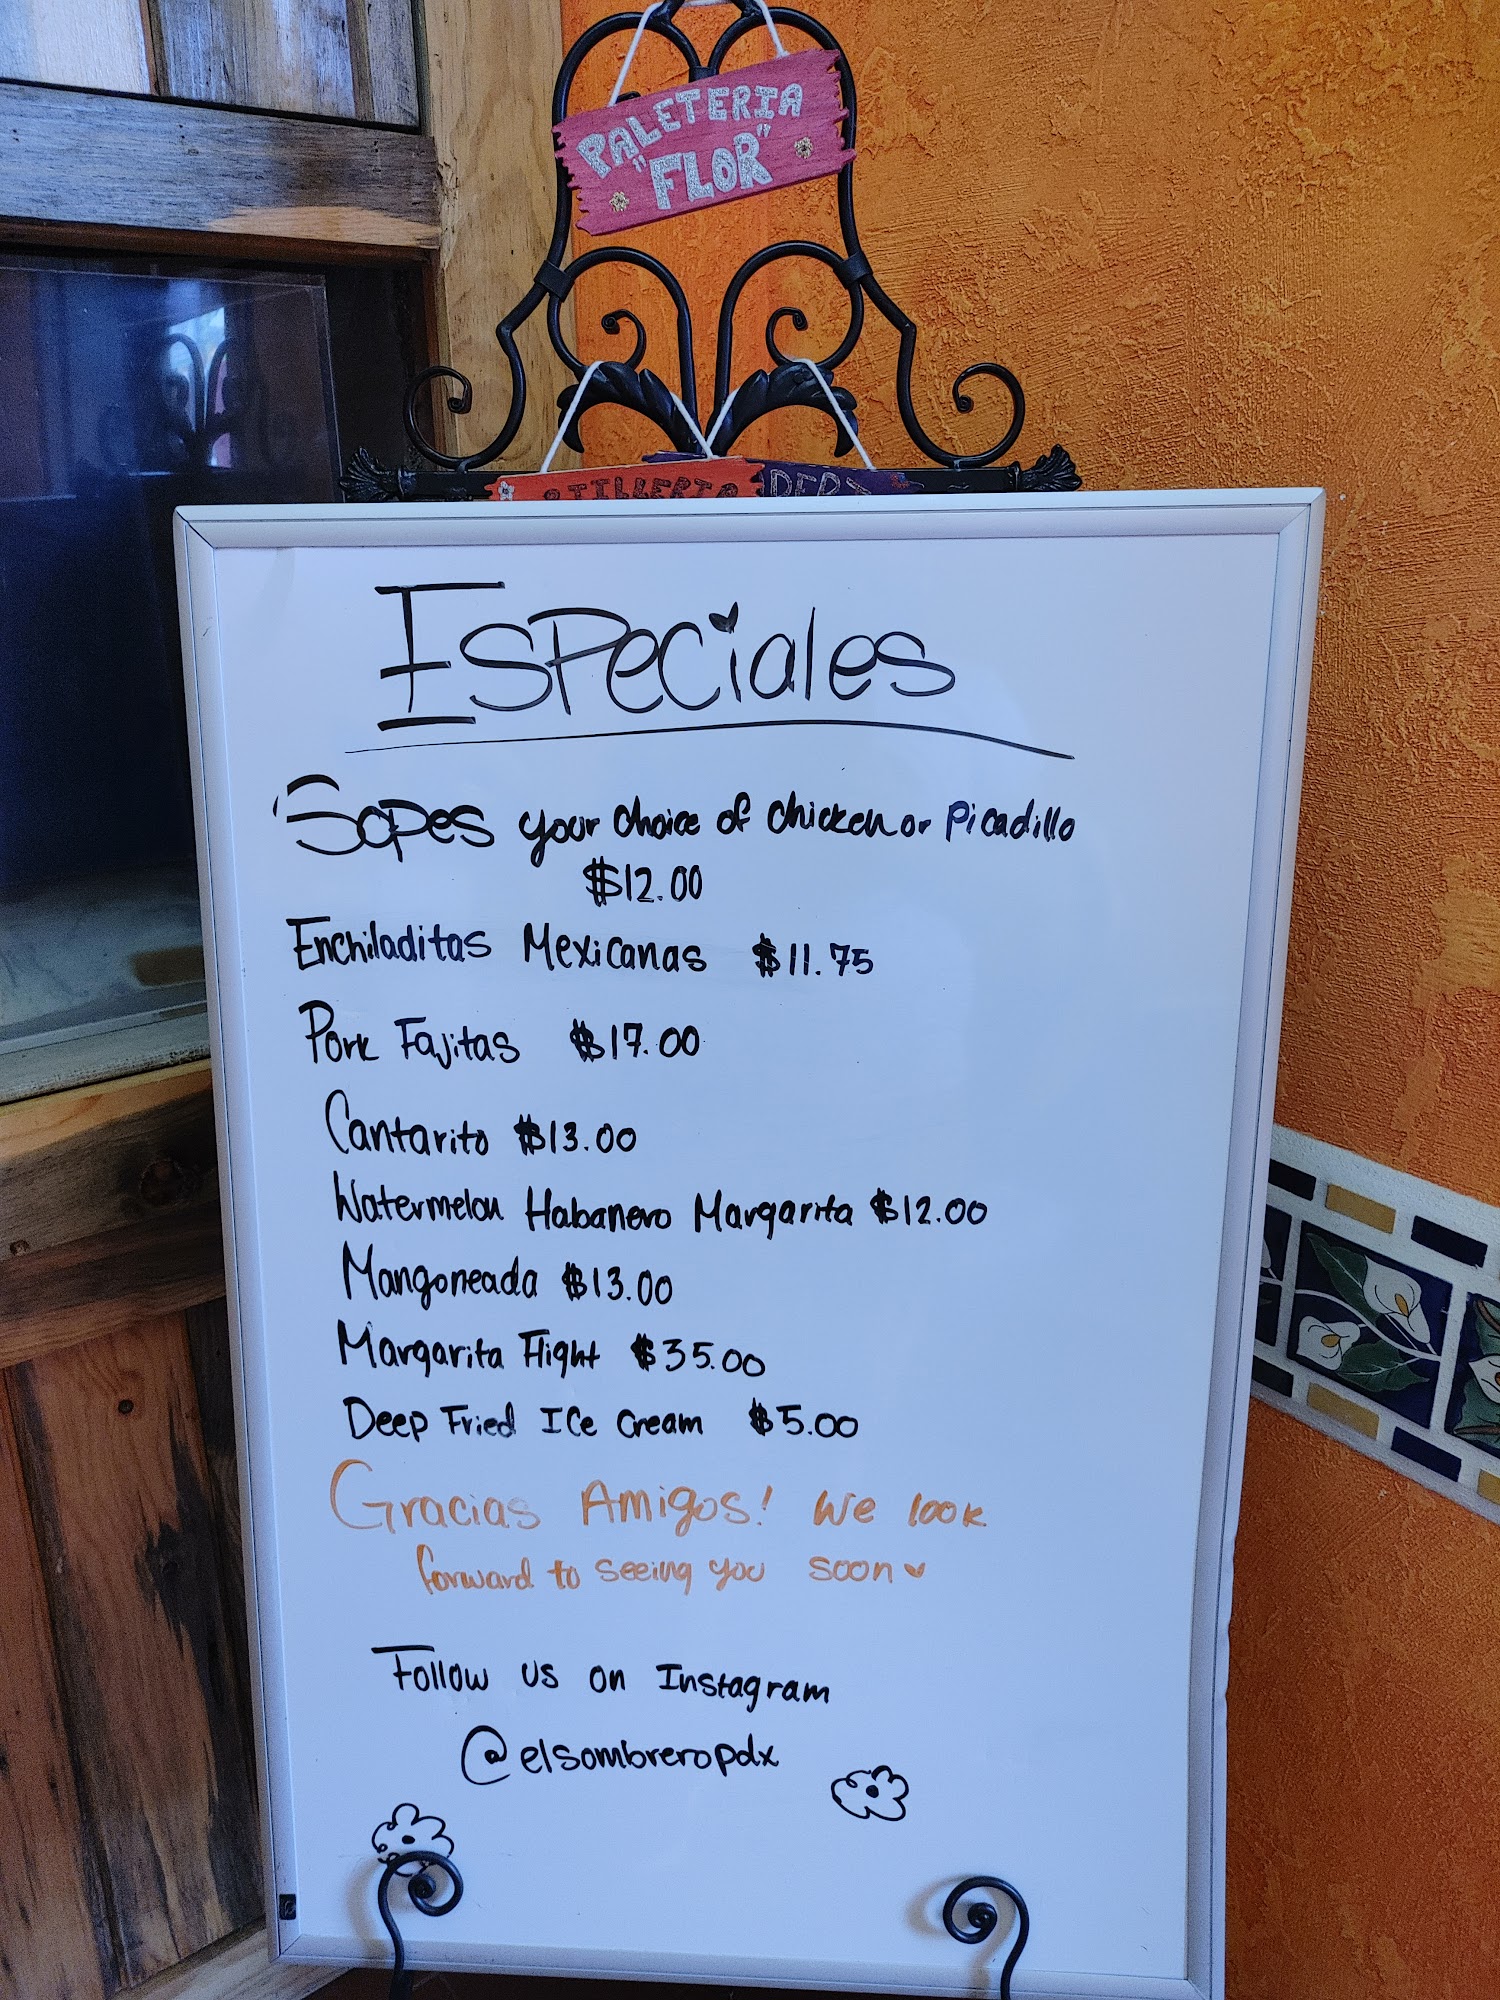 PALETERIA
"FLOR"
Especiales
Sopes your choice of chicken or Picadillo
$12.00
Enchiladitas Mexicanas $11.75
Pork Fajitas $17.00
Cantarito $13.00
Watermelon Habanero Margarita $12.00
Mangoneada $13.00
Margarita Flight $35.00
Deep Fried Ice Cream $5.00
Gracias Amigos! We look
forward to seeing you soon
Follow us on Instagram
@elsombreropdx